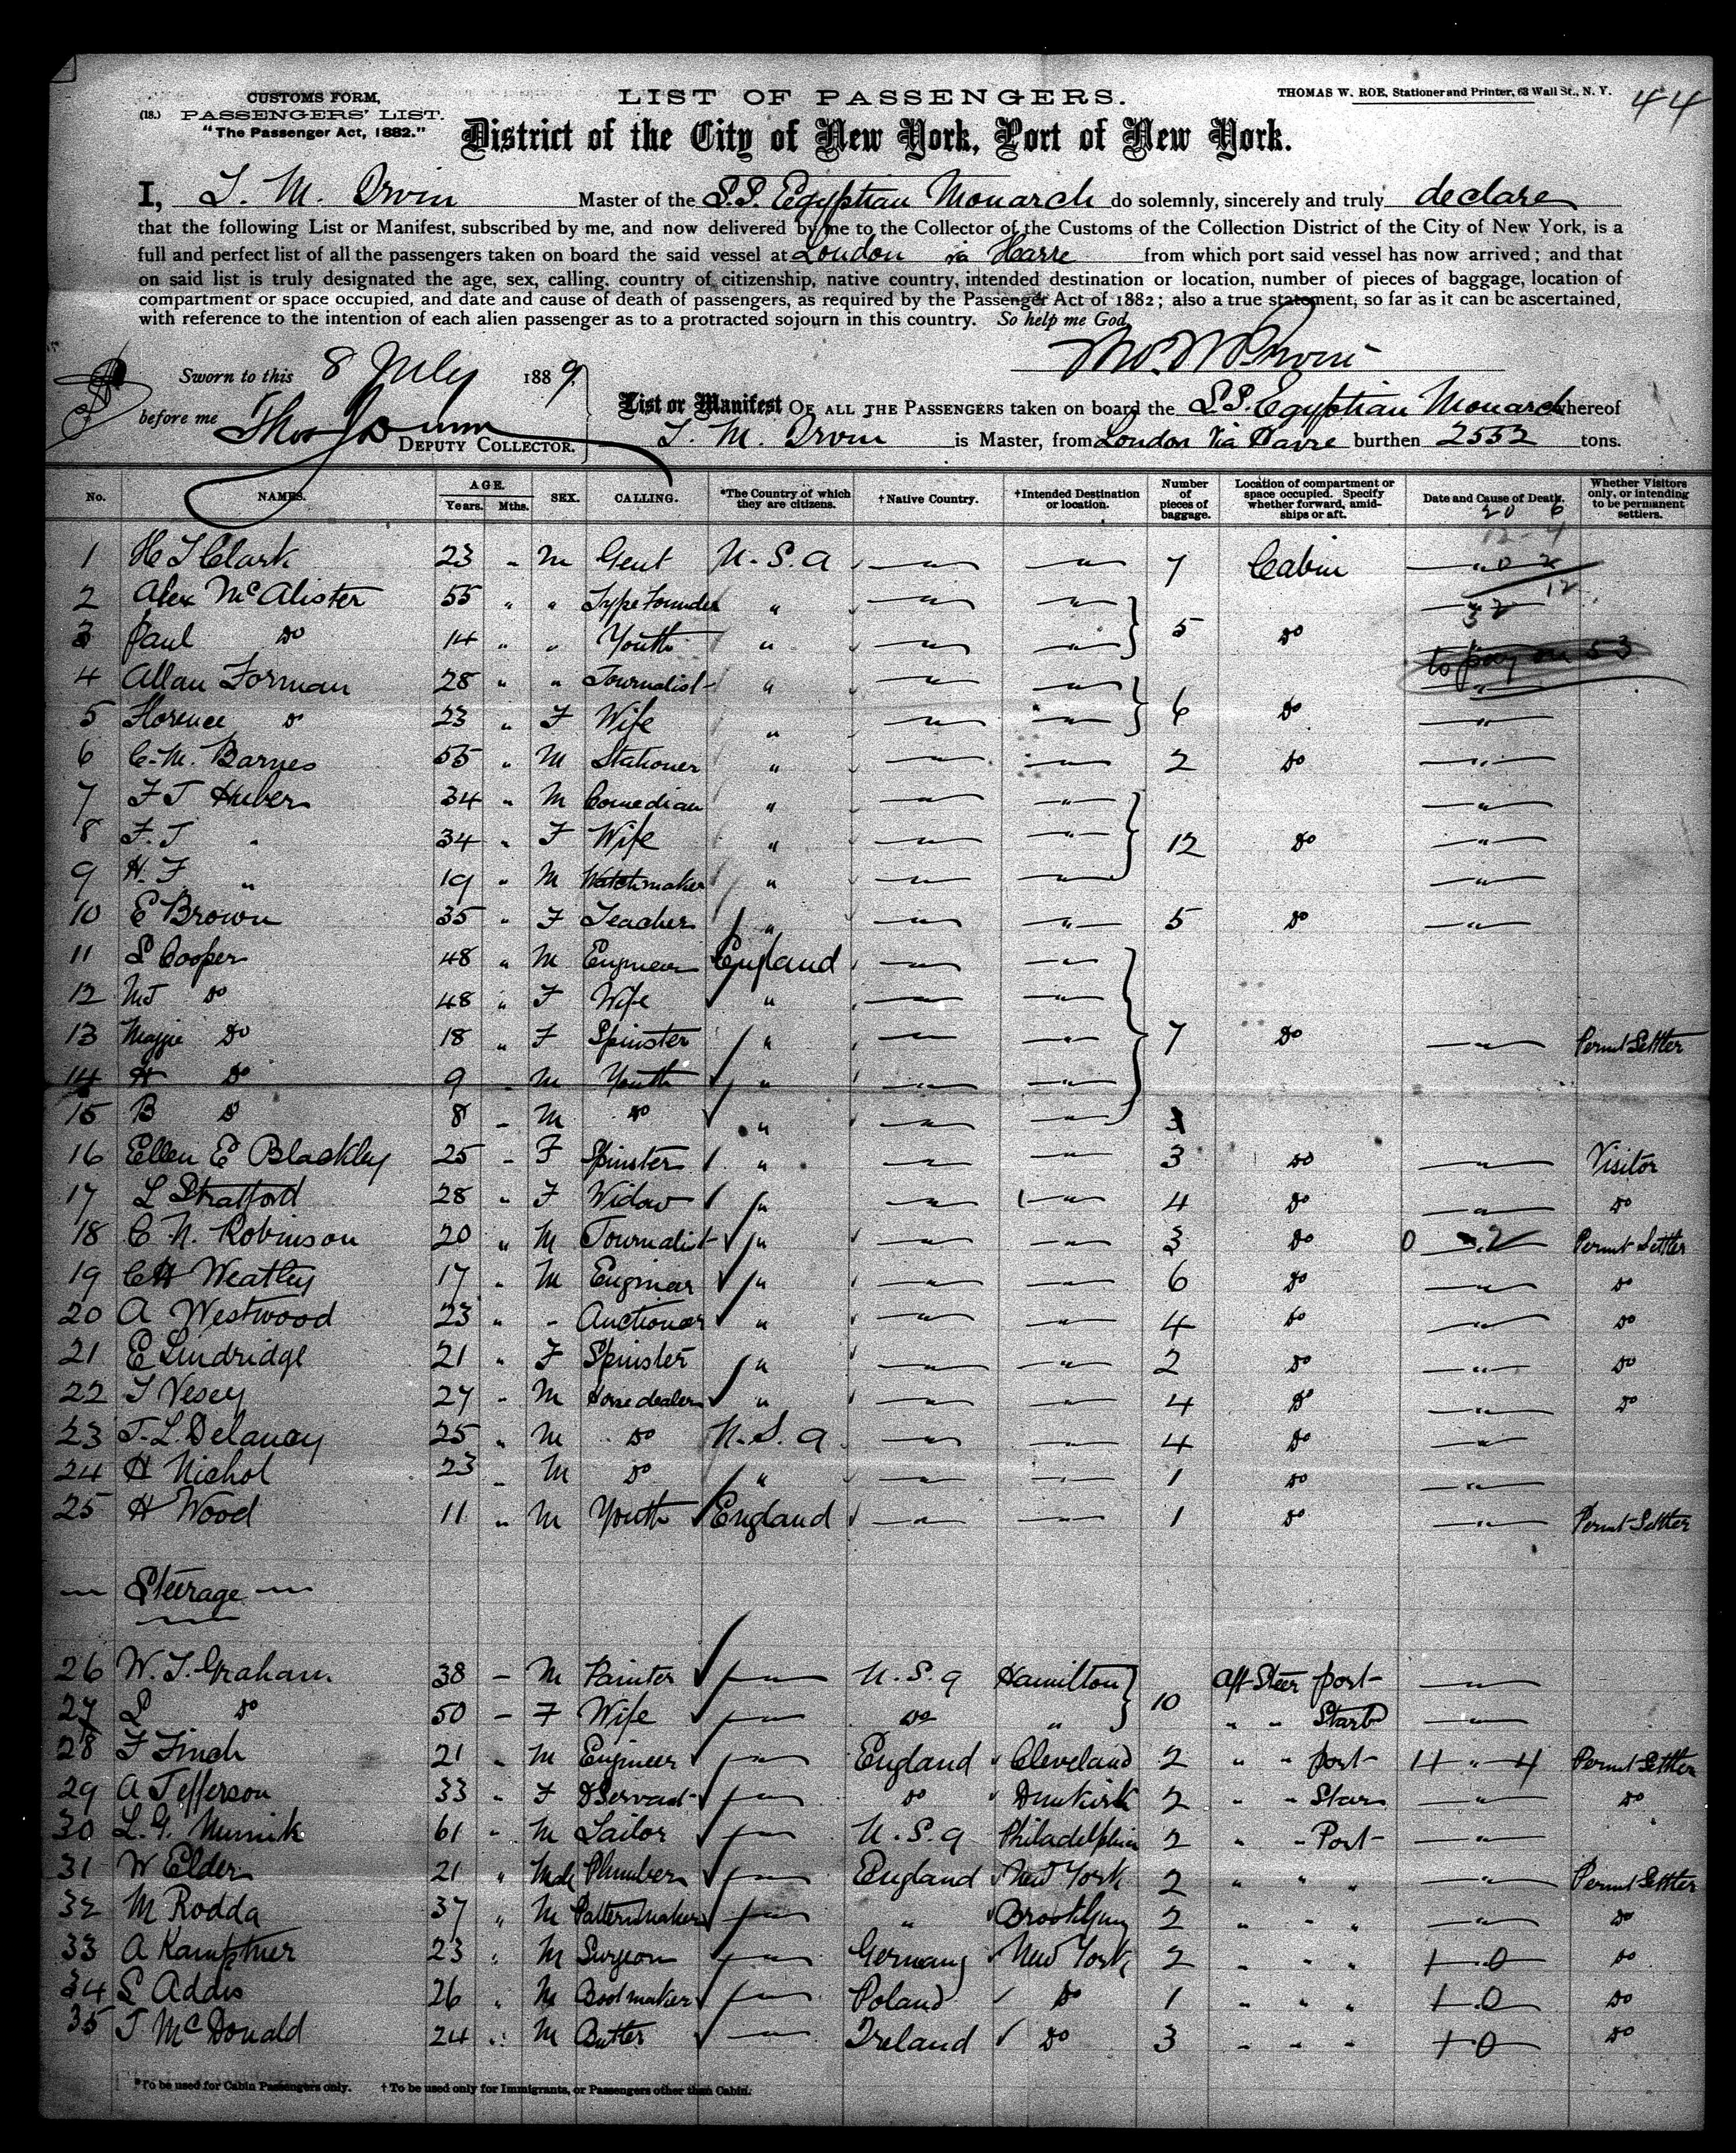 CUSTOMS FORM,
(18.) PASSENGERS' LIST.
"The Passenger Act, 1882."
LIST OF PASSENGERS.
THOMAS W. ROE, Stationer and Printer, 63 Wall St., N. Y.
44
District of the City of New York, Port of New York.
I, T. M. Irvin Master of the S.S. Egyptian Monarch do solemnly, sincerely and truly declare
that the following List or Manifest, subscribed by me, and now delivered by me to the Collector of the Customs of the Collection District of the City of New York, is a
full and perfect list of all the passengers taken on board the said vessel at London via Havre from which port said vessel has now arrived; and that
on said list is truly designated the age, sex, calling, country of citizenship, native country, intended destination or location, number of pieces of baggage, location of
compartment or space occupied, and date and cause of death of passengers, as required by the Passenger Act of 1882; also a true statement, so far as it can be ascertained,
with reference to the intention of each alien passenger as to a protracted sojourn in this country. So help me God
Sworn to this 8 July 1889
before me Thos Dunn
DEPUTY COLLECTOR.
List or Manifest OF ALL THE PASSENGERS taken on board the S.S. Egyptian Monarch whereof
T. M. Irvin is Master, from London Via Havre burthen 2553 tons.
No. NAMES. AGE. Years. Mths. SEX. CALLING. *The Country of which they are citizens. †Native Country. †Intended Destination or location. Number of pieces of baggage. Location of compartment or space occupied. Specify whether forward, amidships or aft. Date and Cause of Death. Whether Visitors only, or intending to be permanent settlers.
1 H T Clark 23 " M Gent U.S.A — " — — " — 7 Cabin
2 Alex McAlister 55 " " Type Founder " — " — — " —
3 Paul Do 14 " " Youth " — " — — " — 5 Do
4 Allan Forman 28 " " Journalist " — " — — " — — " —
5 Florence Do 23 " F Wife " — " — — " — 6 Do — " —
6 C. M. Barnes 55 " M Stationer " — " — — " — 2 Do — " —
7 F J Huber 34 " M Comedian " — " — — " — — " —
8 F. J " 34 " F Wife " — " — — " — 12 Do — " —
9 H. F " 19 " M Watchmaker " — " — — " — — " —
10 E Brown 35 " F Teacher " — " — — " — 5 Do — " —
11 S Cooper 48 " M Engineer England — " — — " —
12 MJ Do 48 " F Wife " — " — — " —
13 Maggie Do 18 " F Spinster " — " — — " — 7 Do — " — Permt Settler
14 H Do 9 " M Youth " — " — — " —
15 B Do 8 " M Do " — " — — " —
16 Ellen E Blackley 25 " F Spinster " — " — — " — 3 Do — " — Visitor
17 L Stratford 28 " F Widow " — " — — " — 4 Do — " — Do
18 C N. Robinson 20 " M Journalist " — " — — " — 3 Do 0 2 Permt Settler
19 C H Weatley 17 " M Engineer " — " — — " — 6 Do — " — Do
20 A Westwood 23 " " Auctioneer " — " — — " — 4 Do — " — Do
21 E Lindridge 21 " F Spinster " — " — — " — 2 Do — " — Do
22 T Vesey 27 " M Horse dealer " — " — — " — 4 Do — " — Do
23 J. L. Delaney 25 " M Do U.S.A — " — — " — 4 Do — " —
24 H Nichol 23 " M Do " — " — — " — 1 Do — " —
25 H Wood 11 " M Youth England — " — — " — 1 Do — " — Permt Settler
— Steerage —
26 W. T. Graham 38 — M Painter — " — U.S.A Hamilton Aft Steer port — " —
27 S Do 50 — F Wife — " — Do " 10 " " Starb — " —
28 F Finch 21 " M Engineer — " — England Cleveland 2 " " port 4 " 4 Permt Settler
29 A Jefferson 33 " F D Servant — " — Do Dunkirk 2 " " Star — " — Do
30 L. G. 61 " M — " — U.S.A Philadelphia 2 " " Port — " —
31 W Elder 21 " Male Plumber — " — England New York 2 " " " — " — Permt Settler
32 M Rodda 37 " M Patternmaker — " — " Brooklyn 2 " " " — " — Do
33 A Kamptner 23 " M Surgeon — " — Germany New York 2 " " " 1 0 Do
34 S Addis 26 " M Bootmaker — " — Poland Do 1 " " " 1 0 Do
35 J McDonald 24 " M Butler — Ireland Do 3 " " " 1 0 Do
*To be used for Cabin Passengers only. †To be used only for Immigrants, or Passengers other than Cabin.